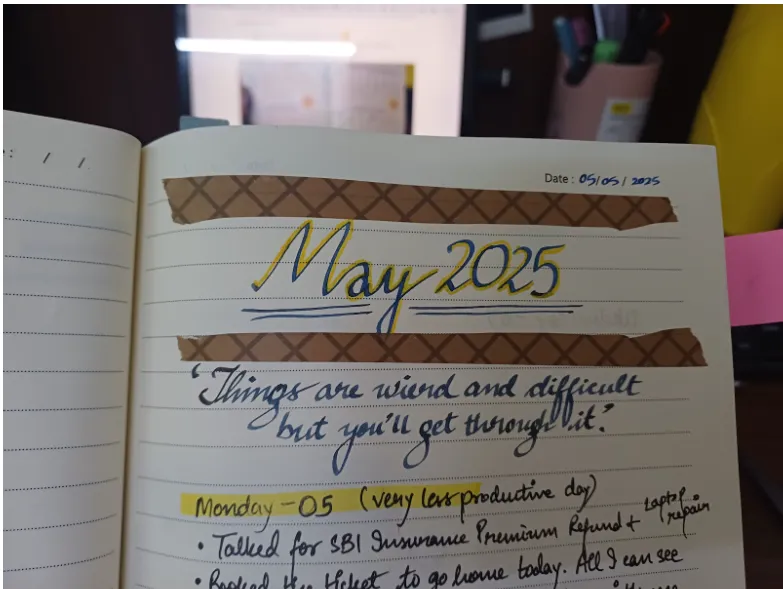 Date : 05/05/2025
May 2025
'Things are wierd and difficult
but you'll get through it.'
Monday - 05 (very less productive day)
• Talked for SBI Insurance Premium Refund + Laptop repair
• Booked the ticket to go home today. All I can see